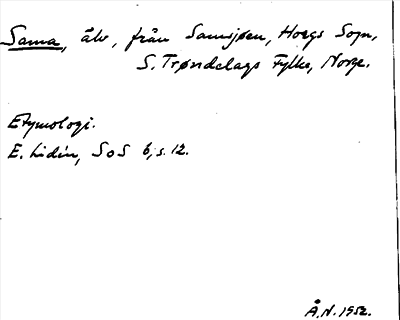 Sama, älv, från Samsjøen, Hoegs Sogn,
S. Trøndelags Fylke, Norge.
Etymologi.
E. Lidén, SoS 6, s. 12.
Å.N. 1952.